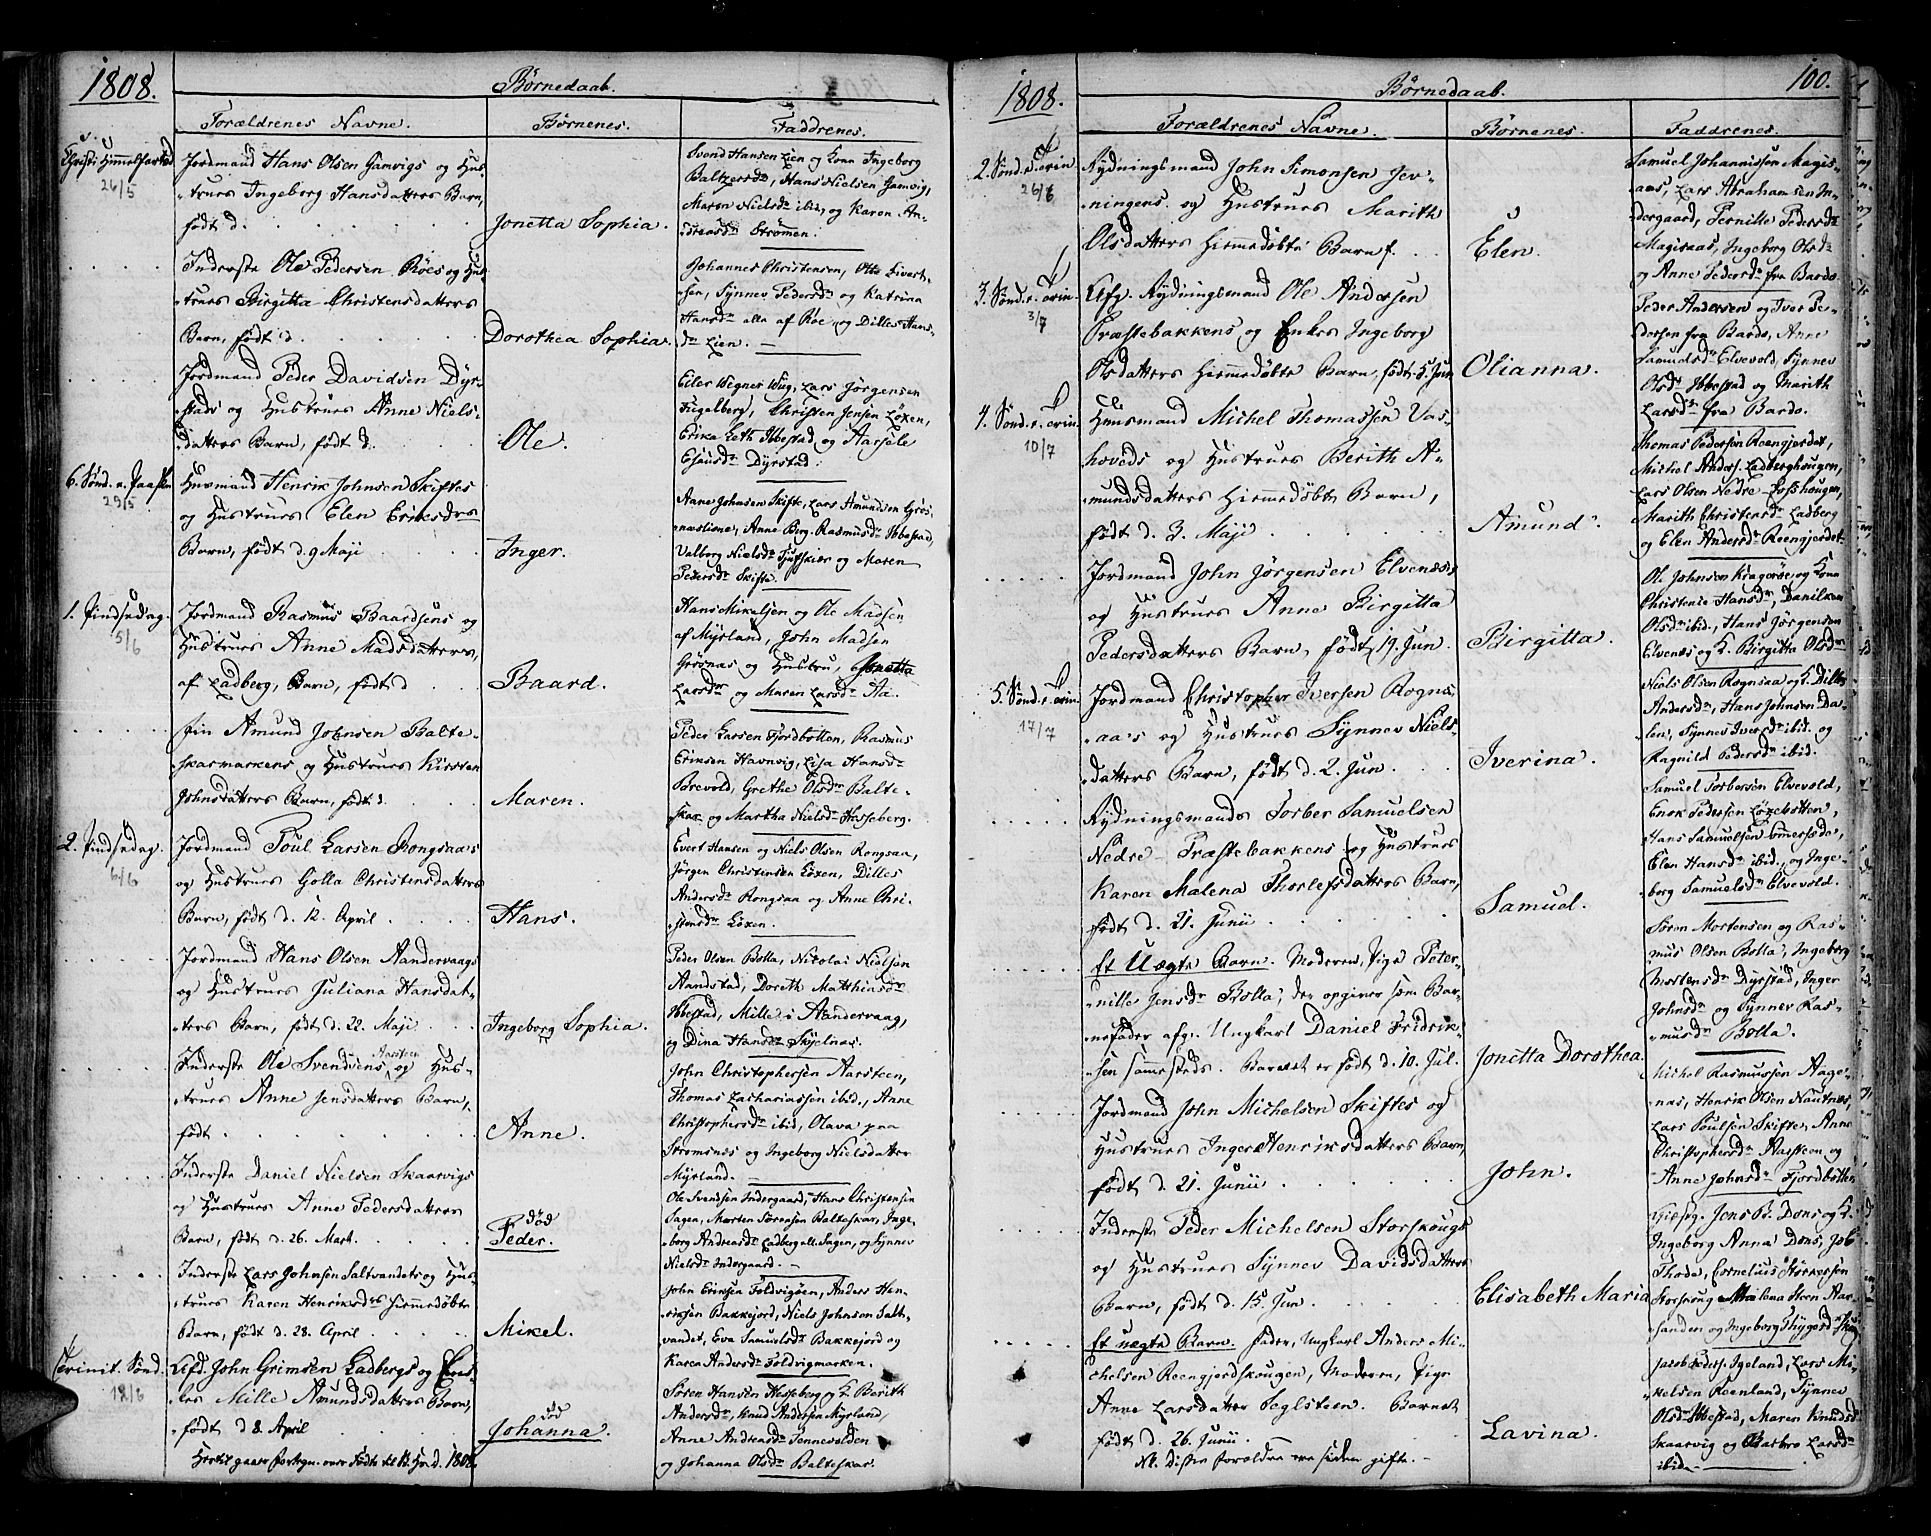 1808.
Børnedaab.
Forældrenes Navne.
Børnenes.
Faddrenes.
Christi Himmelfartsd.
26/5
Jordmand Hans Olsen Gamvigs og Hus-
trues Ingeborg Hansdatters Barn,
født d.
Jonetta Sophia.
Svend Hansen Lien og Kona Ingeborg
Baltzersdr, Hans Nielsen Gamvig,
Maren Nielsdr ibid, og Karen An-
dreasdr Strømen.
Inderste Ole Pedersen Röes og Hus-
trues Birgitta Christensdatters
Barn, født d.
Dorothea Sophia.
Johannes Christensen, Ole Sivert-
sen, Synnev Pedersdr og Katrina
Hansdr alle af Röe, og Dilles Hans-
dr Lien.
Jordmand Peder Davidsen Dyr-
stads og Hustrues Anne Niels-
datters Barn, født d.
Ole.
Eiler Wegner Wug, Lars Jørgensen
Fugelberg, Christen Jensen Løxen,
Erika Leth Ibbestad, og Aasele
Esausdr Dyrstad.
6. Sønd. e. Paaske
29/5
Huusmand Henrik Johnsen Skiftes
og Hustrues Elen Eriksdrs
Barn, født d. 9 Maji
Inger.
Aane Johnsen Skifte, Lars Amundsen Grøs-
næslione, Anne Berg. Rasmusdr Ibbestad,
Valborg Nielsdr Fjutskiær og Maren
Pedersdr Skifte.
1. Pindsedag.
5/6
Jordmand Rasmus Baardsens og
Hustrues Anne Madsdatters,
af Ladberg, Barn, født d
Baard.
Hans Mikelsen og Ole Madsen
af Myrland, John Madsen
Grøsnas og Hustru, Jonetta
Larsdr og Maren Larsdr Aa.
Fin Amund Johnsen Balte-
skarmarkens og Hustrues Kirsten
Johnsdatters Barn, født d.
Maren.
Peder Larsen Fjordbotten, Rasmus
Eriksen Havnvig, Lisa Hansdr
Brevold, Grethe Olsdr Balte-
skar og Martha Nielsdr Hasseberg.
2. Pindsedag.
6/6
Jordmand Poul Larsen Rongsaas
og Hustrues Golla Christensdatters
Barn, født d. 12. April
Hans.
Evert Hansen og Niels Olsen Rongsaa,
Jörgen Christensen Löxen, Dilles
Andersdr Rongsaa og Anne Chri-
stensdr Löxen.
Jordmand Hans Olsen Aandervaags
og Hustrues Juliana Hansdat-
ters Barn, født d. 22. Maji
Ingeborg Sophia.
Peder Olsen Bolla, Nicolai Nielsen
Aandstad, Doreth Matthiasdr
Ibbestad, Mille i Aandervaag,
og Dina Hansdr Skjelnas.
Inderste Ole Svendsens Aarsteen og Hus-
trues Anne Jensdatters Barn,
født
Anne.
John Christophersen Aarsteen,
Thomas Zachariassen ibid., Anne
Christophersdr ibid, Olava paa
Strømsnæs og Ingeborg Nielsdatter
Myrland.
Inderste Daniel Nielsen Skaarvigs
og Hustrues Anne Pedersdatters
Barn, født d. 26. Mart.
død
Peder.
Ole Svendsen Indergaard, Hans Christensen
Sagen, Morten Sørensen Balteskar, Inge-
borg Andreasdr Ladberg ell. Sagen, og Synnev
Nielsdr Indergaard.
Inderste Lars Johnsen Saltvandets og Hus-
trues Karen Henriksdrs hiemmedøbte
Barn, født d. 28. April
Mikel.
John Eriksen Foldvigöen, Anders Hen-
riksen Bakkejord, Niels Johnsen Salt-
vandet, Eva Samuelsdr Bakkejord og
Karen Andersdr Foldvigmarken.
Trinit. Sønd.
12/6
Afd. John Grimsen Ladbergs og En-
kes Mille Amundsdatters Barn,
født d 8. April
død
Johanna.
Søren Hansen Hesseberg og K. Berith
Andersdr, Knud Andersen Myrland,
Anne Andreasdr Tennevolden
og Johanna Olsdr Balteskar.
Hertil gaaer fortegn. over Fødte til B. Hr. d. 1808.
1808.
Børnedaab.
100.
Forældrenes Navne.
Børnenes.
Faddrenes.
2. Sønd. e. Trin.
26/6
Rydningsmand John Simonsen Jev-
ningens og Hustrues Marith
Olsdatters hiemmedøbte Barn f.
Elen.
Samuel Johannissen Magis-
aas, Lars Abrahamsen In-
dergaard, Pernille Pedersdr
Magisaas, Ingeborg Olsdr
og Anne Pedersdr fra Bardo.
3. Sønd. e. Trin.
3/7
Afg. Rydningsmand Ole Andersen
Præstebakkens og Enkes Ingeborg
Olsdatters hiemmedøbte Barn, født 5. Jun
Olianna.
Peder Andersen og Iver Pe-
dersen fra Bardo, Anne
Samuelsdr Elvevold, Synnev
Olsdr Ibbestad og Marith
Larsdr fra Bardo.
4. Sønd. e. Trin.
10/7
Huusmand Michel Thomassen Vas-
hoveds og Hustrues Berith A-
mundsdatters hiemmedøbte Barn,
født d. 3. Maji
Amund.
Thomas Pedersen Reengjerdet,
Michel Anders. Ladberghougen,
Lars Olsen Nedre-Fosshougen,
Marith Christensdr Ladberg
og Elen Andersdr Reengjerdet
Jordmand John Jørgensen Elvenæs
og Hustrues Anne Birgitta
Pedersdatters Barn, født 19. Jun
Birgitta.
Ole Johnsen Kragerøe og Kona
Christenie Hansdr, Danilken
Olsdr ibid., Hans Jørgensen
Elvenæs og K. Birgitta Olsdr
5. Sønd. e. Trin.
17/7
Jordmand Christopher Iversen Rogns-
aa's og Hustrues Synnev Niels-
datters Barn, født d. 2. Jun.
Iverina.
Niels Olsen Rognsaa og K. Dilles
Andersdr, Hans Johnsen Da-
len, Synnev Iversdr ibid. og
Ragnild Pedersdr ibid.
Rydningsmands Torber Samuelsen
Nedre-Præstebakkens og Hustrues
Karen Malena Thorlefsdatters Barn,
født d. 21. Junii
Samuel.
Samuel Torbersen Elvevold,
Enok Pedersen Løxebotten,
Hans Samuelsen Sommersæde,
Elen Hansdr ibid., og Inge-
borg Samuelsdr Elvevold.
Et Uægte Barn. Moderen, Pige Peter-
nille Jensdr Bolla; der opgiver som Bar-
nefader afg. Ungkarl Daniel Fridrik-
sen sammesteds. Barnet er født d. 10. Jul.
Jonetta Dorothea.
Søren Mortensen og Ras-
mus Olsen Bolla, Ingeborg
Mortensdr Dyrstad, Inger
Johnsdr og Synnev Ras-
musdr Bolla.
Jordmand John Michelsen Skiftes og
Hustrues Inger Henriksdatters Barn,
født d. 21. Junii
John.
Michel Rasmussen Aage-
nas, Henrik Olsen Nautnæs,
Lars Poulsen Skifte, Anne
Christophersdr Aarsteen og
Anne Johnsdr Fjordbotten
Inderste Peder Michelsen Storskougs
og Hustrues Synnev Davidsdatters
Barn, født d. 15. Jun.
Elisabeth Maria
Giestg. Jens Pr. Dons og K.
Ingeborg Anna Dons, Job
Thode, Cornelius Størkersen
Storskoug, Malena Steen Aar-
sanden og Ingeborg Thygesdr Skoug
Et uægte Barn. Fader, Ungkarl Anders Mi-
chelsen Reengjerdskougen, Moderen, Pige
Anne Larsdatter Seglsteen. Barnet
født d. 26. Junii
Nb. Disse forældre ere siden gifte.
Lavina.
Jacob Peders. Igeland, Lars Mi-
kelsen Reenland, Synnev
Olsdr Ibbestad, Maren Knudsdr
Skaarvig og Barbro Larsdr
ibid.